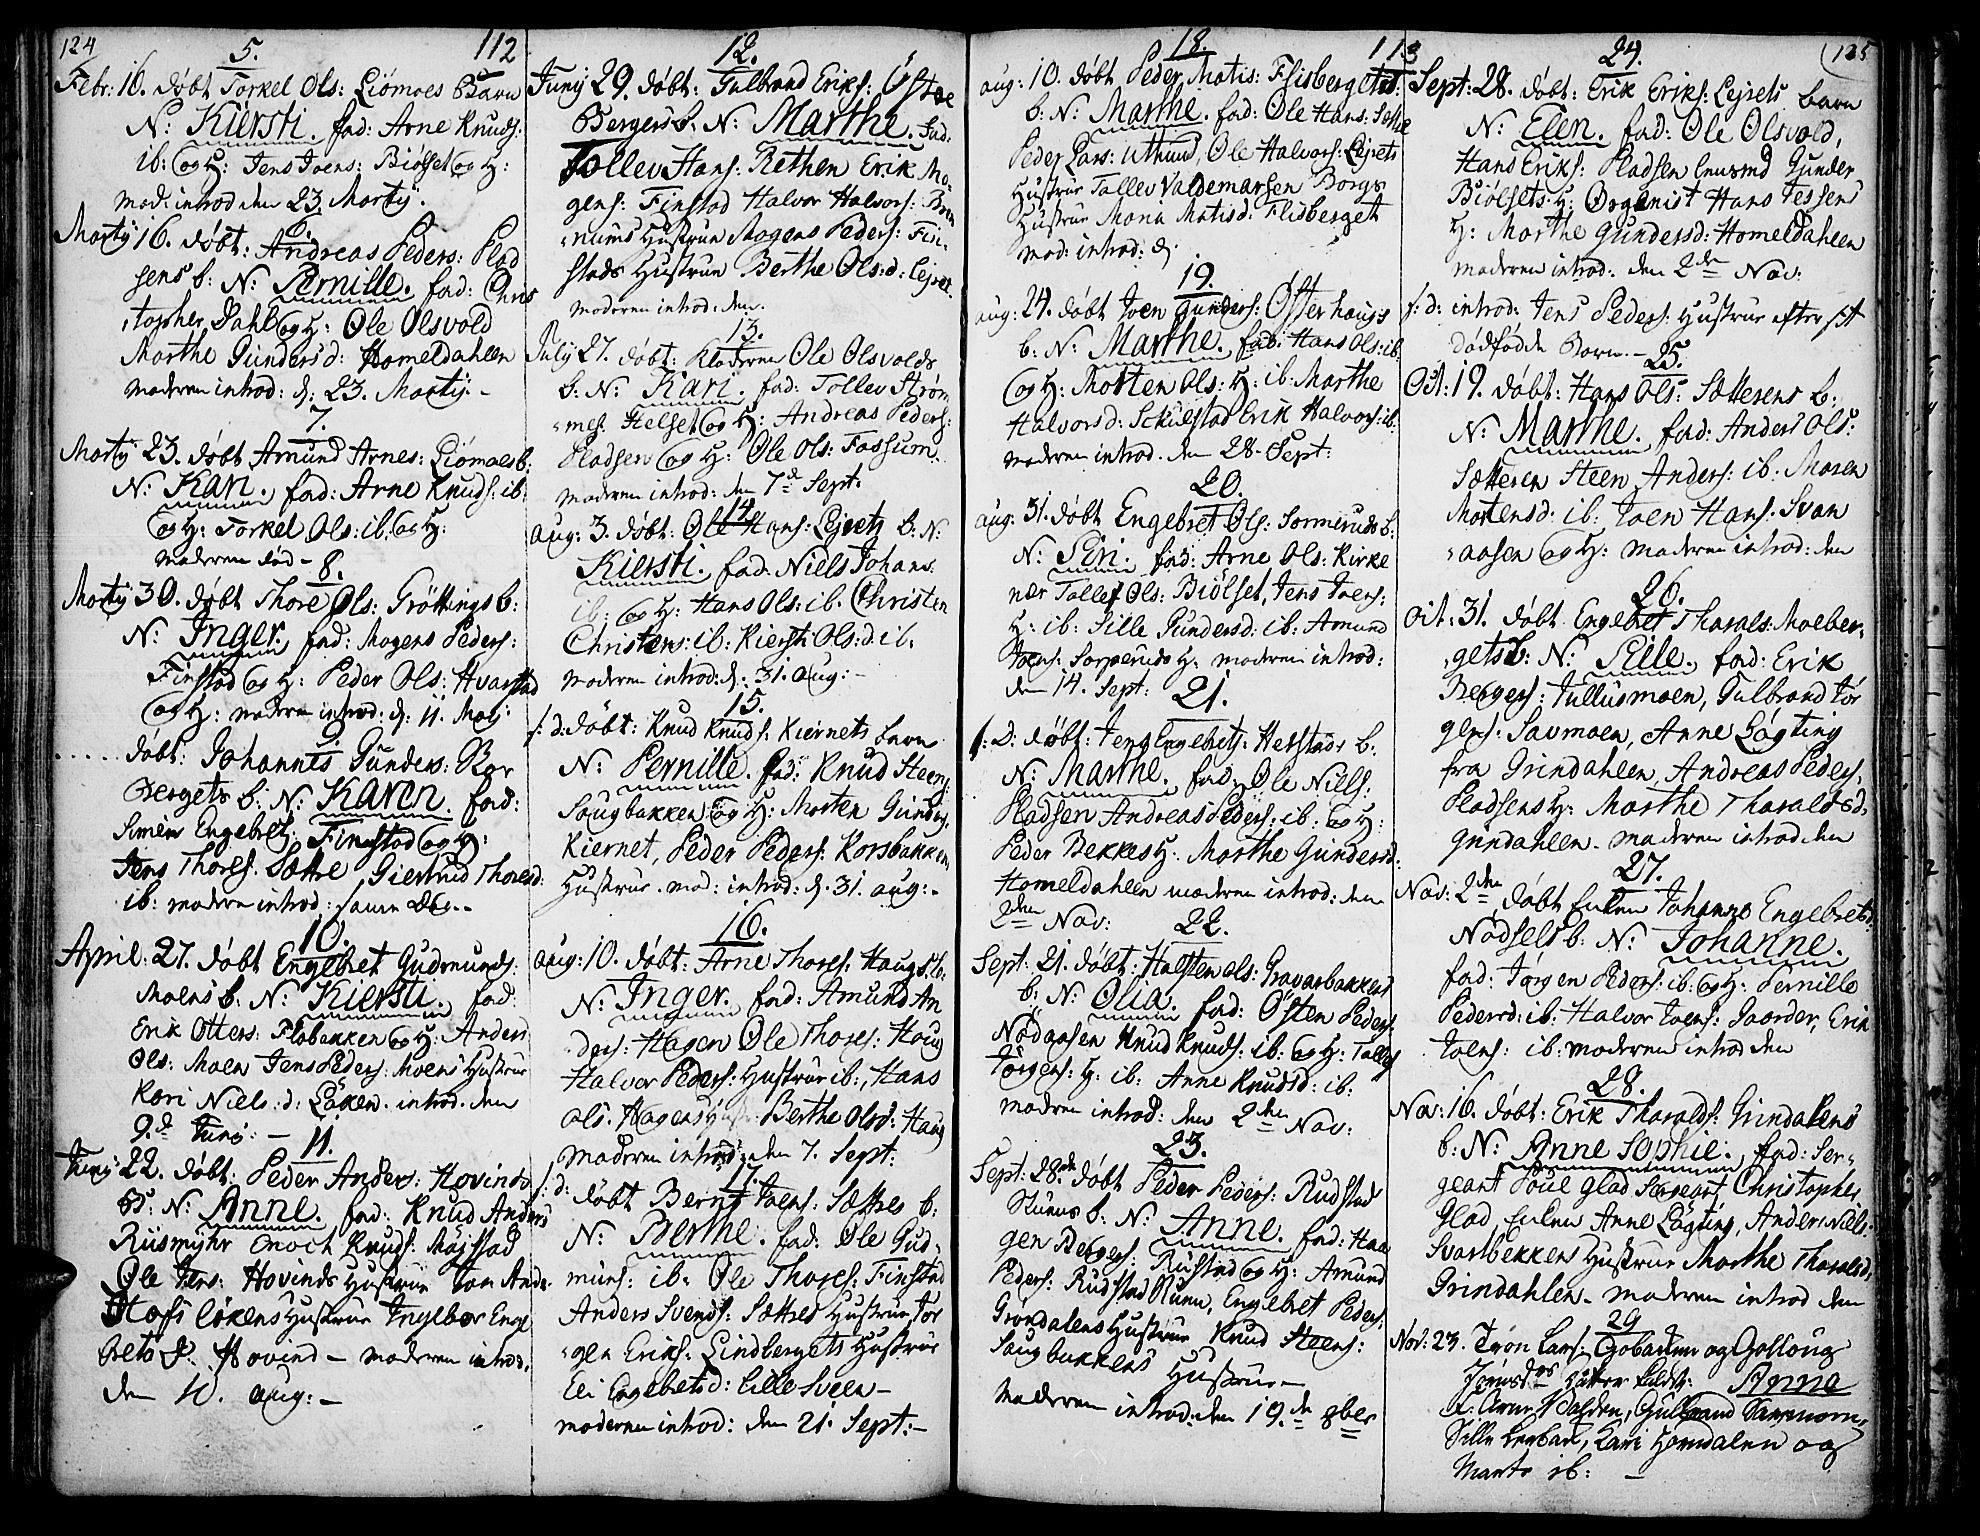 124
112
5.
Febr: 16. døbt Torkel Ols: Liømoes Barn
N: Kiersti. fad: Arne Knuds:
ib: og H: Jens Joens: Biølset og H:
mod: introd den 23. Martij.
6.
Martij 16. døbt: Andreas Peders: Plad
sens b: N: Pernille. fad: Chris
topher Dahl og H: Ole Olsvold
Marthe Gundersd: Homeldahlen
moderen introd: d: 23. Martij. -
7.
Martij 23. døbt Amund Arnes: Liømoes b:
N: Kari. fad: Arne Knuds: ib:
og H: Torkel Ols: ib: og H:
moderen død -
8.
Martij 30. døbt Thore Ols: Grøttings b:
N: Inger. fad: Mogens Peders:
Finstad og H: Peder Ols: Hvarstad
og H: moderen introd: d: 11. Maij.
9
..... døbt: Johannes Gunders: Bor
Bergets b: N: Karen. fad:
Simen Engebrets: Finstad og H:
Jens Thores: Sættre Giertrud Thoresd:
ib: moderen introd: samme Dag.-
10.
April: 27. døbt Engebret Gudmunds:
Moens b: N: Kiersti. fad:
Erik Otters: Flobakken og H: Anders
Ols: Moen Jens Peders: Moens Hustrue
Kari Niels: d: Løken. introd. den
9.d Junj: -
11.
Junj: 22. døbt: Peder Anders: Hovinds
B: N: Anne. fad: Knud Anders
Riismyhr Enoch Knuds: Møistad
Ole Jens: Hovinds Hustrue Lars Ande
Hoffsløkens Hustrue Ingebor Enge
brets d: Hovind - moderen introd.
den 10. aug: -
12.
Junij 29. døbt: Gulbrand Eriks: Østbye
Bergers b. N: Marthe. fad:
Tollev Hans: Rethen Erik Mo-
gens: Finstad Halvor Halvors: Bon
nums Hustrue Mogens Peders: Fin-
stads Hustrue Berthe Ols:d: Lejret.
moderen introd: den.
13.
July 27. døbt: Klokkeren Ole Olsvolds
b: N: Kari. fad: Tollev Strøm
mes: Helset og H: Andreas Peders:
Pladsen og H: Ole Ols: Fossum.
moderen introd: den 7d Sept.
14
Aug: 3. døbt: Ole Hans: Lejrets b: N:
Kiersti. fad: Niels Johans:
ib: og H: Hans Ols: ib. Christen
Christens: ib: Kiersti Ols:d: ib.
moderen introd: d: 31. aug: -
15.
s: d: døbt: Knud Knuds: Kiernets barn
N: Pernille. fad: Knud Steens:
Saugbakken og H: Morten Gunders.
Kiernet, Peder Peders: Korsbakken
Hustrue. mod: introd: d: 31. aug: -
16.
Aug: 10. døbt: Arne Thores: Haugs b:
N: Inger. fad: Amund An
ders: Hagen Ole Thores: Houg
Halvor Peders: Hustrue ib:, Hans
Ols: Hagens H: Berthe Olsd: Haug
moderen introd: den 7. Sept:
17.
s: d: døbt Bernt Joens: Sættres b:
N: Berthe. fad: Ole Gud-
muns: ib: Ole Thores: Finstad
Anders Svends: Sættres Hustrue Jør
gen Eriks: Lindbergets Hustrue
Eli Engebretsd: Lille Sveen -
moderen introd: den 21. Sept: -
18.
113
aug: 10. døbt Peder Matis: Flisbergets
b: N: Marthe. fad: Ole Hans: Sættre
Peder Lars: Uthuus, Ole Halvors: Lejrets
Hustrue Tollev Valdemarsen Borgs
Hustrue Maria Matisd: Flisberget
mod: introd: d
19.
aug: 24. døbt Joen Gunders: Østerhaugs
b: N: Marthe. fad: Hans Ols: ib:
og H: Morten Ols: H: ib: Marthe
Halvorsd: Schulstad Erik Halvors: ib:
moderen introd. den 28. Sept:
20.
aug: 31. døbt Engebret Ols: Sormeruds b:
N: Siri. fad: Arne Ols: Kirke
nær Tollef Ols: Biølset, Jens Joens:
H: ib: Sille Gundersd: ib: Amund
Joens: Sorperuds H: moderen introd:
den 14. Sept:
21.
s: d: døbt: Jens Engebrets: Hetstads b:
N: Marthe. fad: Ole Niels:
Pladsen Andreas Peders: ib: og H:
Peder Bekkes H: Marthe Gundersd:
Homeldahlen moderen introd: den
2den Nov:
22.
Sept: 21. døbt: Halsten Ols: Gravasbakkens
b: N: Olia. fad: Østen Peders:
Nødaasen Knud Knuds: ib: og H: Tollef
Jørgens: H: ib: Anne Knudsd: ib:
moderen introd: den 2den Nov:
23.
Sept: 28de døbt Peder Peders: Rudstad
Stuens b: N: Anne. fad: Haa
gen Bergers: Rustad og H: Amund
Peders: Rudstad Stuen, Engebret Peders:
Grøndalens Hustrue Knud Steens:
Saugbakkens Hustrue -
moderen introd: den 19.de 8ber
24.
125
Sept: 28. døbt: Erik Eriks: Lejrets barn
N: Elen. fad: Ole Olsvold,
Hans Eriks: Pladsen Amund Gunder
Biølsets H: Organist Hans Jessens
H: Marthe Gundersd: Homeldahlen
moderen introd: den 2de Nov:
s: d: introd: Jens Peders: Hustrue efter sit
dødfødde Barn. -
25.
Oct: 19. døbt: Hans Ols: Sætterens b:
N: Marthe. fad: Anders Ols:
Sætteren Steen Anders: ib: Maren
Mortensd: ib: Joen Hans: Svan
aasen og H: moderen introd: den
26.
Oct: 31. døbt Engebret Tharals: Moeber-
gets b: N: Sille. fad: Erik
Bergers: Julliusmoen, Gulbrand Jør
gens: Savmoen, Anne Løgting
fra Grindahlen Andreas Peders:
Pladsens H: Marthe Tharaldsd:
Grindahlen. moderen introd: den
27.
Nov: 2den døbt Enken Johannes Engebretsd:
Nødsels b: N: Johanne.
fad: Jørgen Peders: ib: og H: Pernille
Pedersd: ib: Halvor Joens: Gaarder, Erik
Joens: ib: moderen introd den
28.
Nov: 16. døbt: Erik Tharalds: Grindalens
b: N: Anne Sophie. fad: Ser-
geant Poul Glad Sergeant Christopher
Glad, Enken Anne Løgting, Anders Niels:
Svartbekkens Hustrue Marthe Tharaldsd,
Grindahlen - moderen introd den
29
Nov: 23. Tron Lars: og Golloug
Anne
Gulbrand Savmoen,
Kari Horndalen og
Marte ib: -